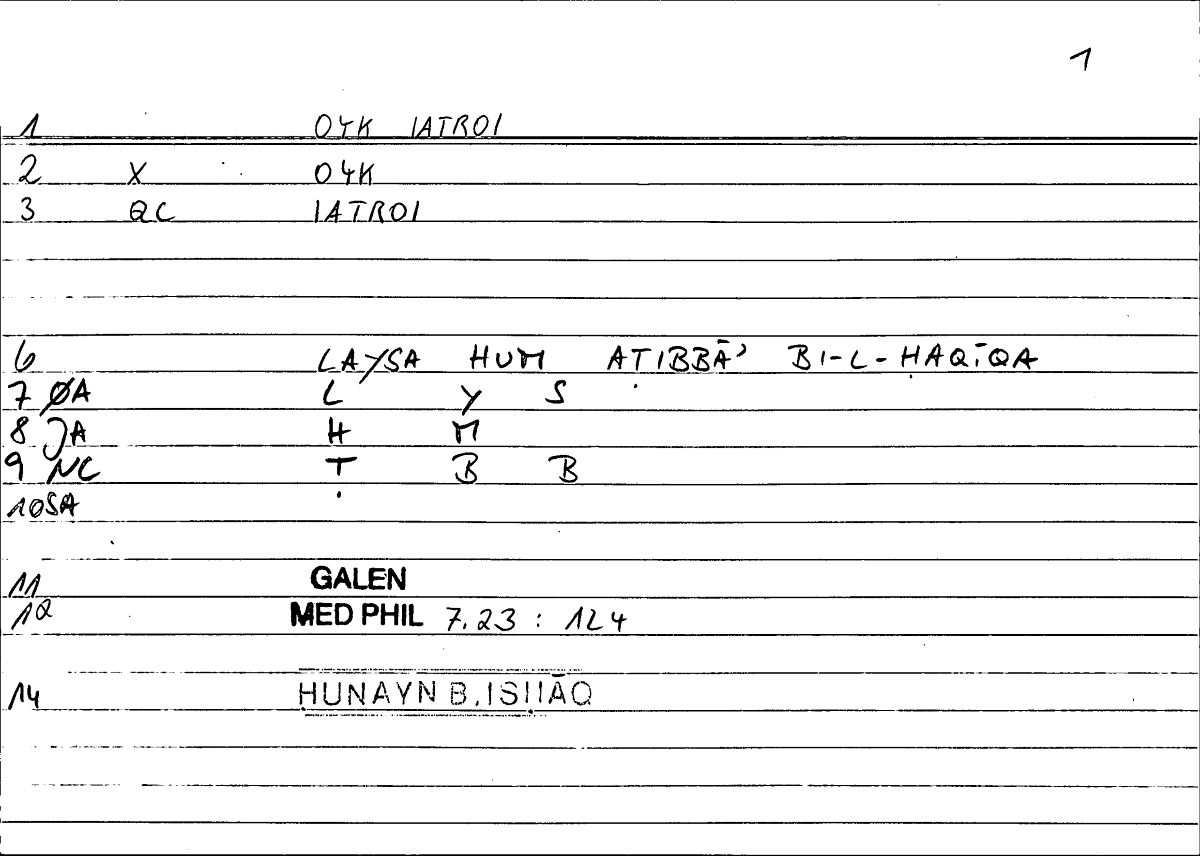 1
1 O4K IATROI
2 X O4K
3 QC IATROI
6 LAYSA HUM AṬIBBĀʾ BI-L-ḤAQĪQA
7 ØA L Y S
8 JA H M
9 NC Ṭ B B
10 SA
11 GALEN
12 MED PHIL 7.23 : 1L4
14 ḤUNAYN B. ISḤĀQ